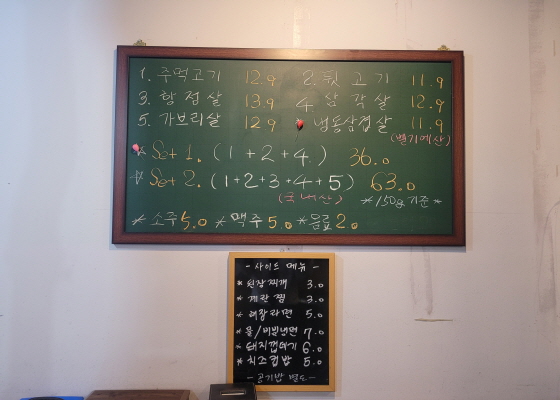 1. 주먹고기 12.9 2. 뒷고기 11.9
3. 항정살 13.9 4. 삼각살 12.9
5. 가브리살 12.9 냉동삼겹살 11.9
(벨기에산)
* Set 1. (1+2+4) 36.0
* Set 2. (1+2+3+4+5) 63.0
(국내산) *150g 기준*
* 소주 5.0 * 맥주 5.0 * 음료 2.0
- 사이드 메뉴 -
* 된장찌개 3.0
* 계란찜 3.0
* 해장라면 5.0
* 물/비빔냉면 7.0
* 돼지껍데기 6.0
* 치즈컵밥 5.0
- 공기밥 별도 -